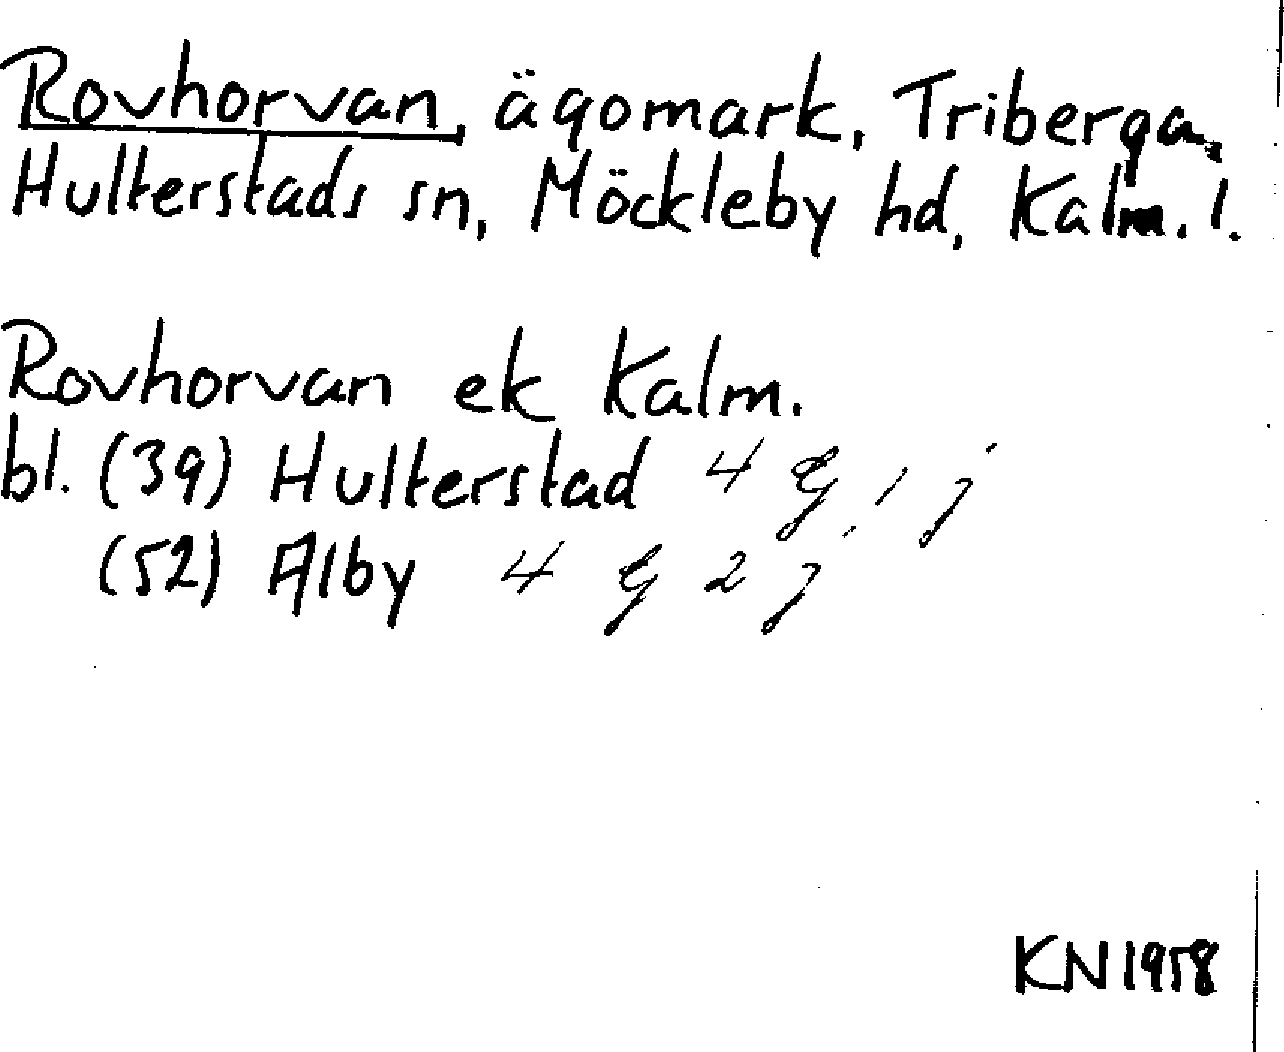 Rovhorvan, ägomark, Triberga,
Hulterstads sn, Möckleby hd, Kalm. l.
Rovhorvan ek Kalm.
bl. (39) Hulterstad 4 G, 1 j
(52) Alby 4 G 2 j
KN 1958